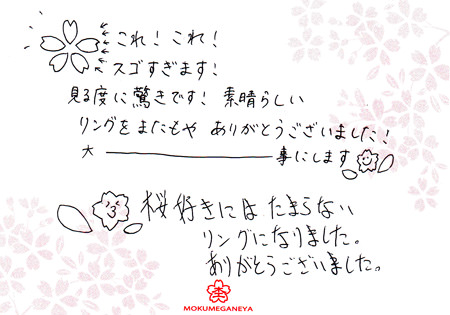 これ！これ！
スゴすぎます！
見る度に驚きです！素晴らしい
リングをまたもや ありがとうございました！
大――――――――事にします
桜好きには たまらない
リングになりました。
ありがとうございました。
MOKUMEGANEYA